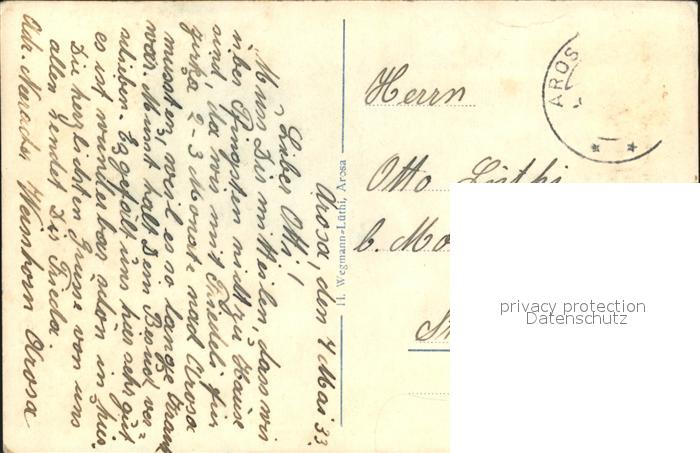 Arosa, den 7 Mai 33.
Lieber Otti!
Muss Dir mitteilen, dass wir
über Pfingsten nicht zu Hause
sind, da wir mit Friedeli für
zirka 2-3 Monate nach Arosa
mussten, weil es so lange krank
war. Musst halt Dein Besuch ver=
schieben. Es gefällt uns hier sehr gut
es ist wunderbar schön in hier.
Die herzlichsten Grüsse von uns
allen sendet Dir Frieda.
Adr. Weinhorn Arosa
H. Wegmann-Lüthi, Arosa
AROS
Herrn
Otto Lüthi
b. Mo
privacy protection
Datenschutz